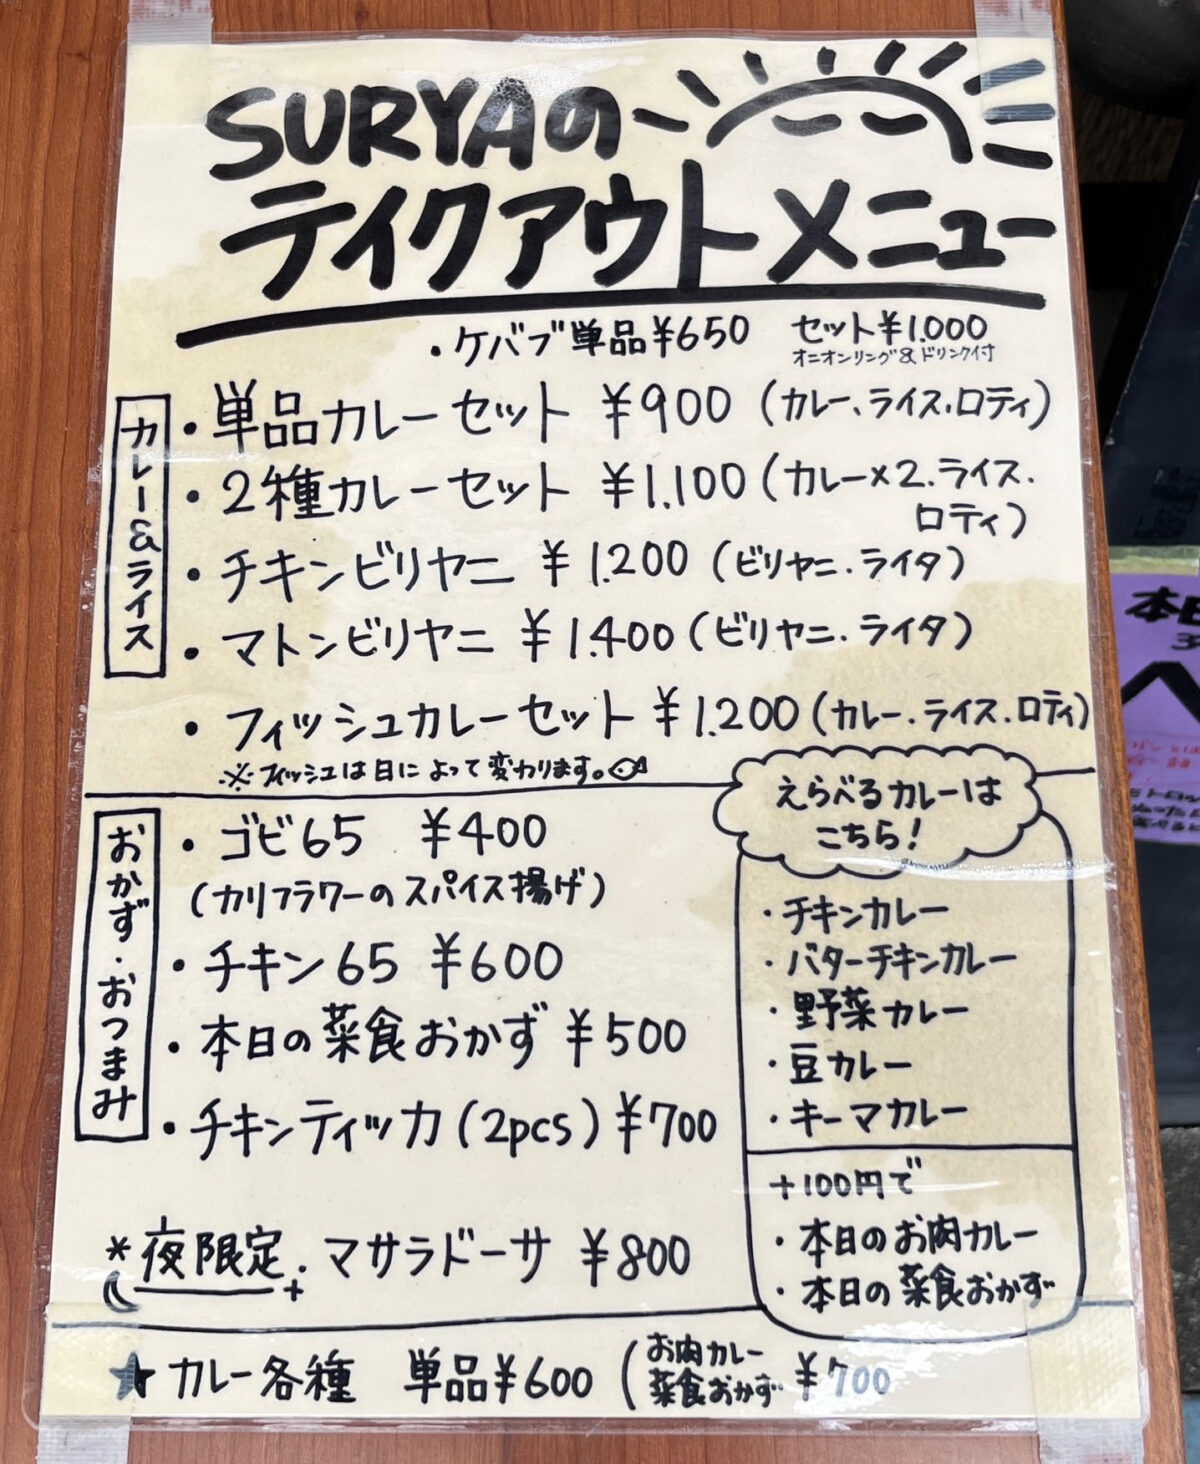 SURYAの
テイクアウトメニュー
・ケバブ単品¥650 セット¥1.000
オニオンリング&ドリンク付
カレー&ライス
・単品カレーセット ¥900(カレー、ライス、ロティ)
・2種カレーセット ¥1.100(カレー×2.ライス.
ロティ)
・チキンビリヤニ ¥1.200(ビリヤニ.ライタ)
・マトンビリヤニ ¥1.400(ビリヤニ.ライタ)
・フィッシュカレーセット ¥1.200(カレー.ライス.ロティ)
※フィッシュは日によって変わります。
おかず・おつまみ
・ゴビ65 ¥400
(カリフラワーのスパイス揚げ)
・チキン65 ¥600
・本日の菜食おかず ¥500
・チキンティッカ(2pcs)¥700
*夜限定.マサラドーサ ¥800
えらべるカレーは
こちら!
・チキンカレー
・バターチキンカレー
・野菜カレー
・豆カレー
・キーマカレー
+100円で
・本日のお肉カレー
・本日の菜食おかず
★カレー各種 単品¥600(お肉カレー
菜食おかず ¥700